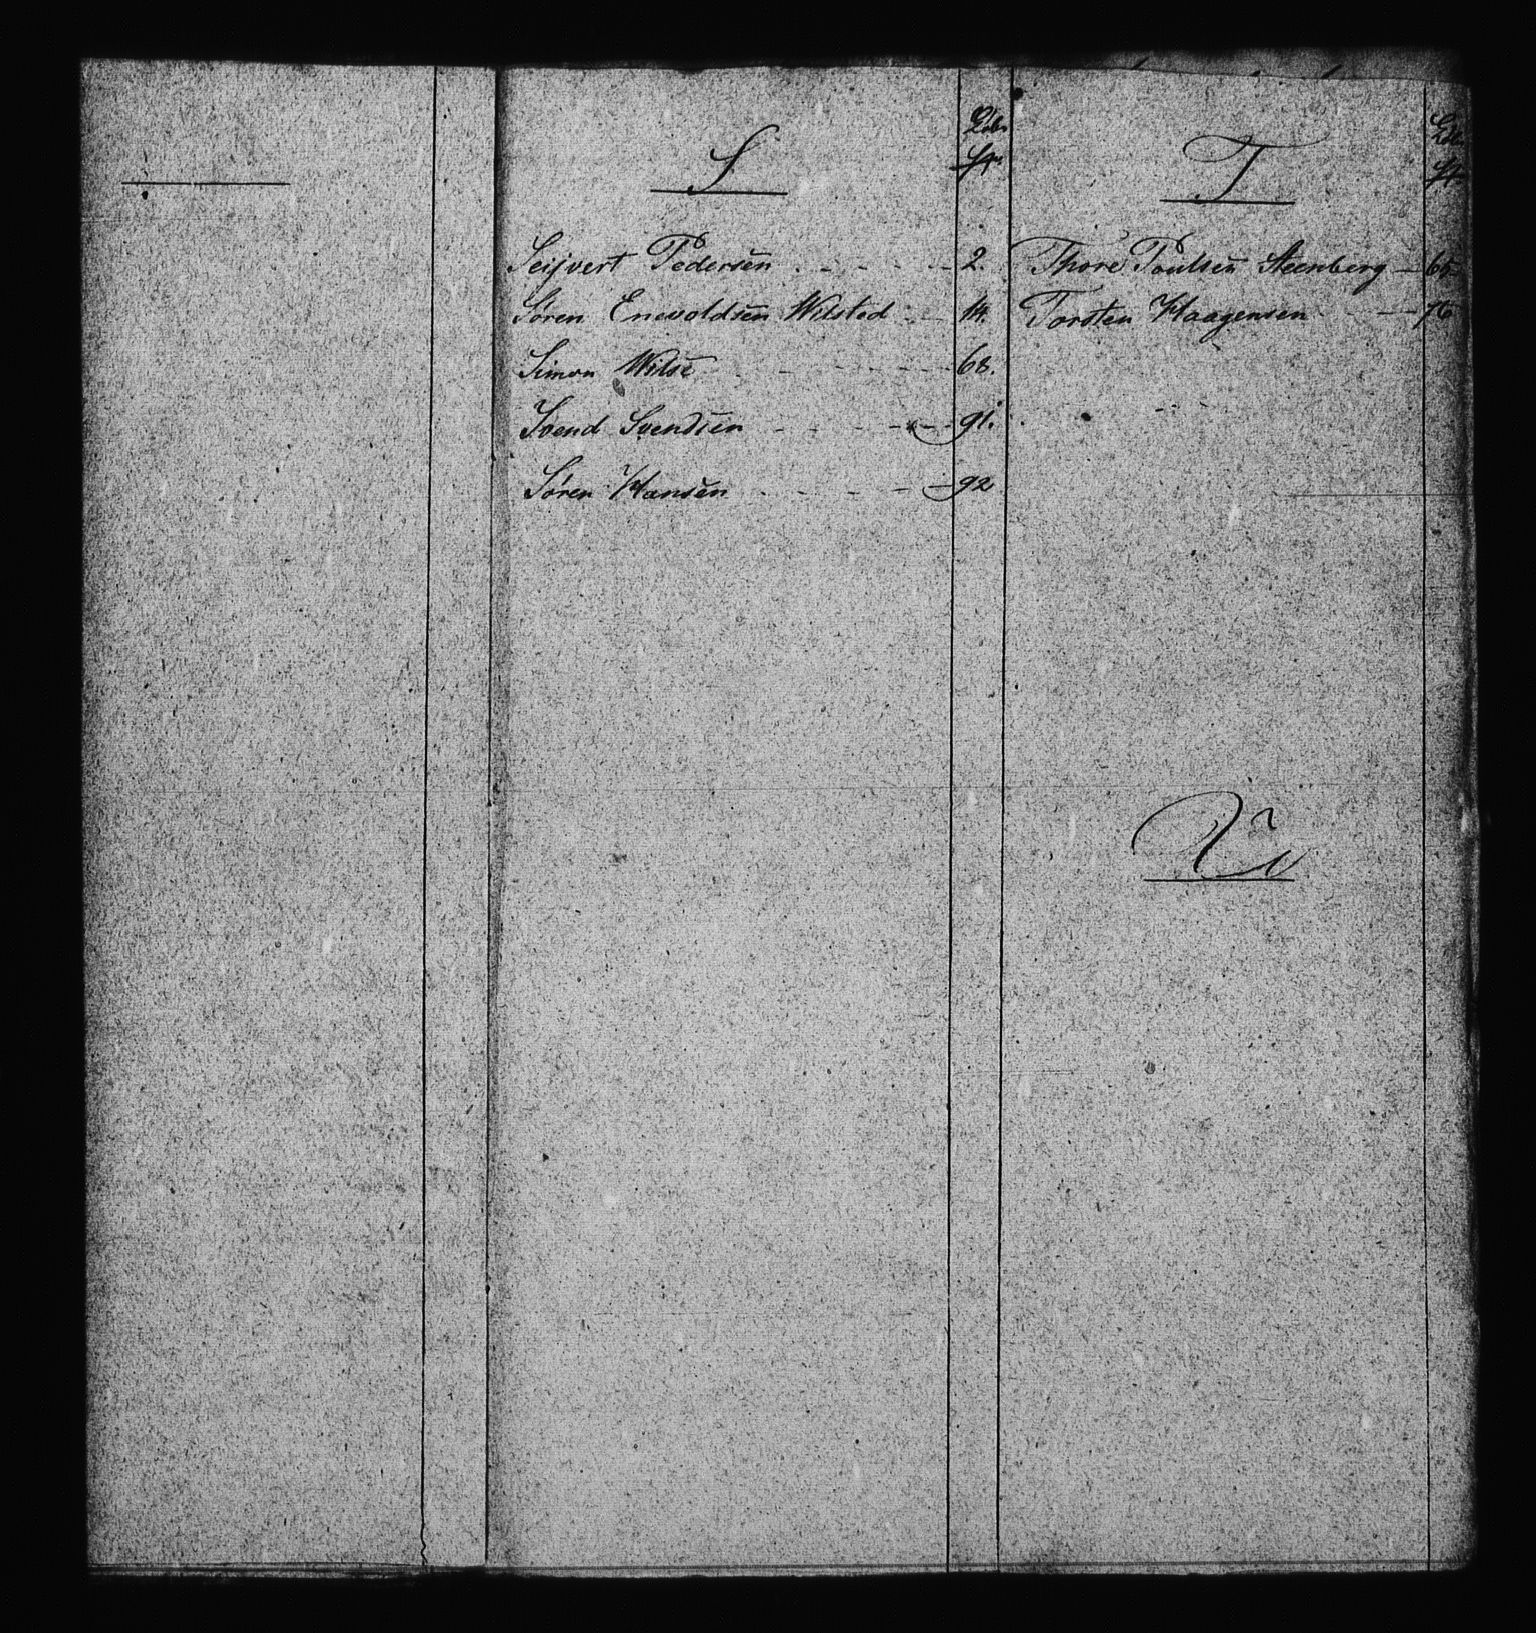 S
Løbe
Nr.
Seijvert Pedersen 2.
Søren Enevoldsen Wilsted 14.
Simon Wilse 68.
Svend Svendsen 91.
Søren Hansen 92
T
Løbe
Nr.
Thore Poulsen Steenberg 65
Torsten Haagensen 76
U